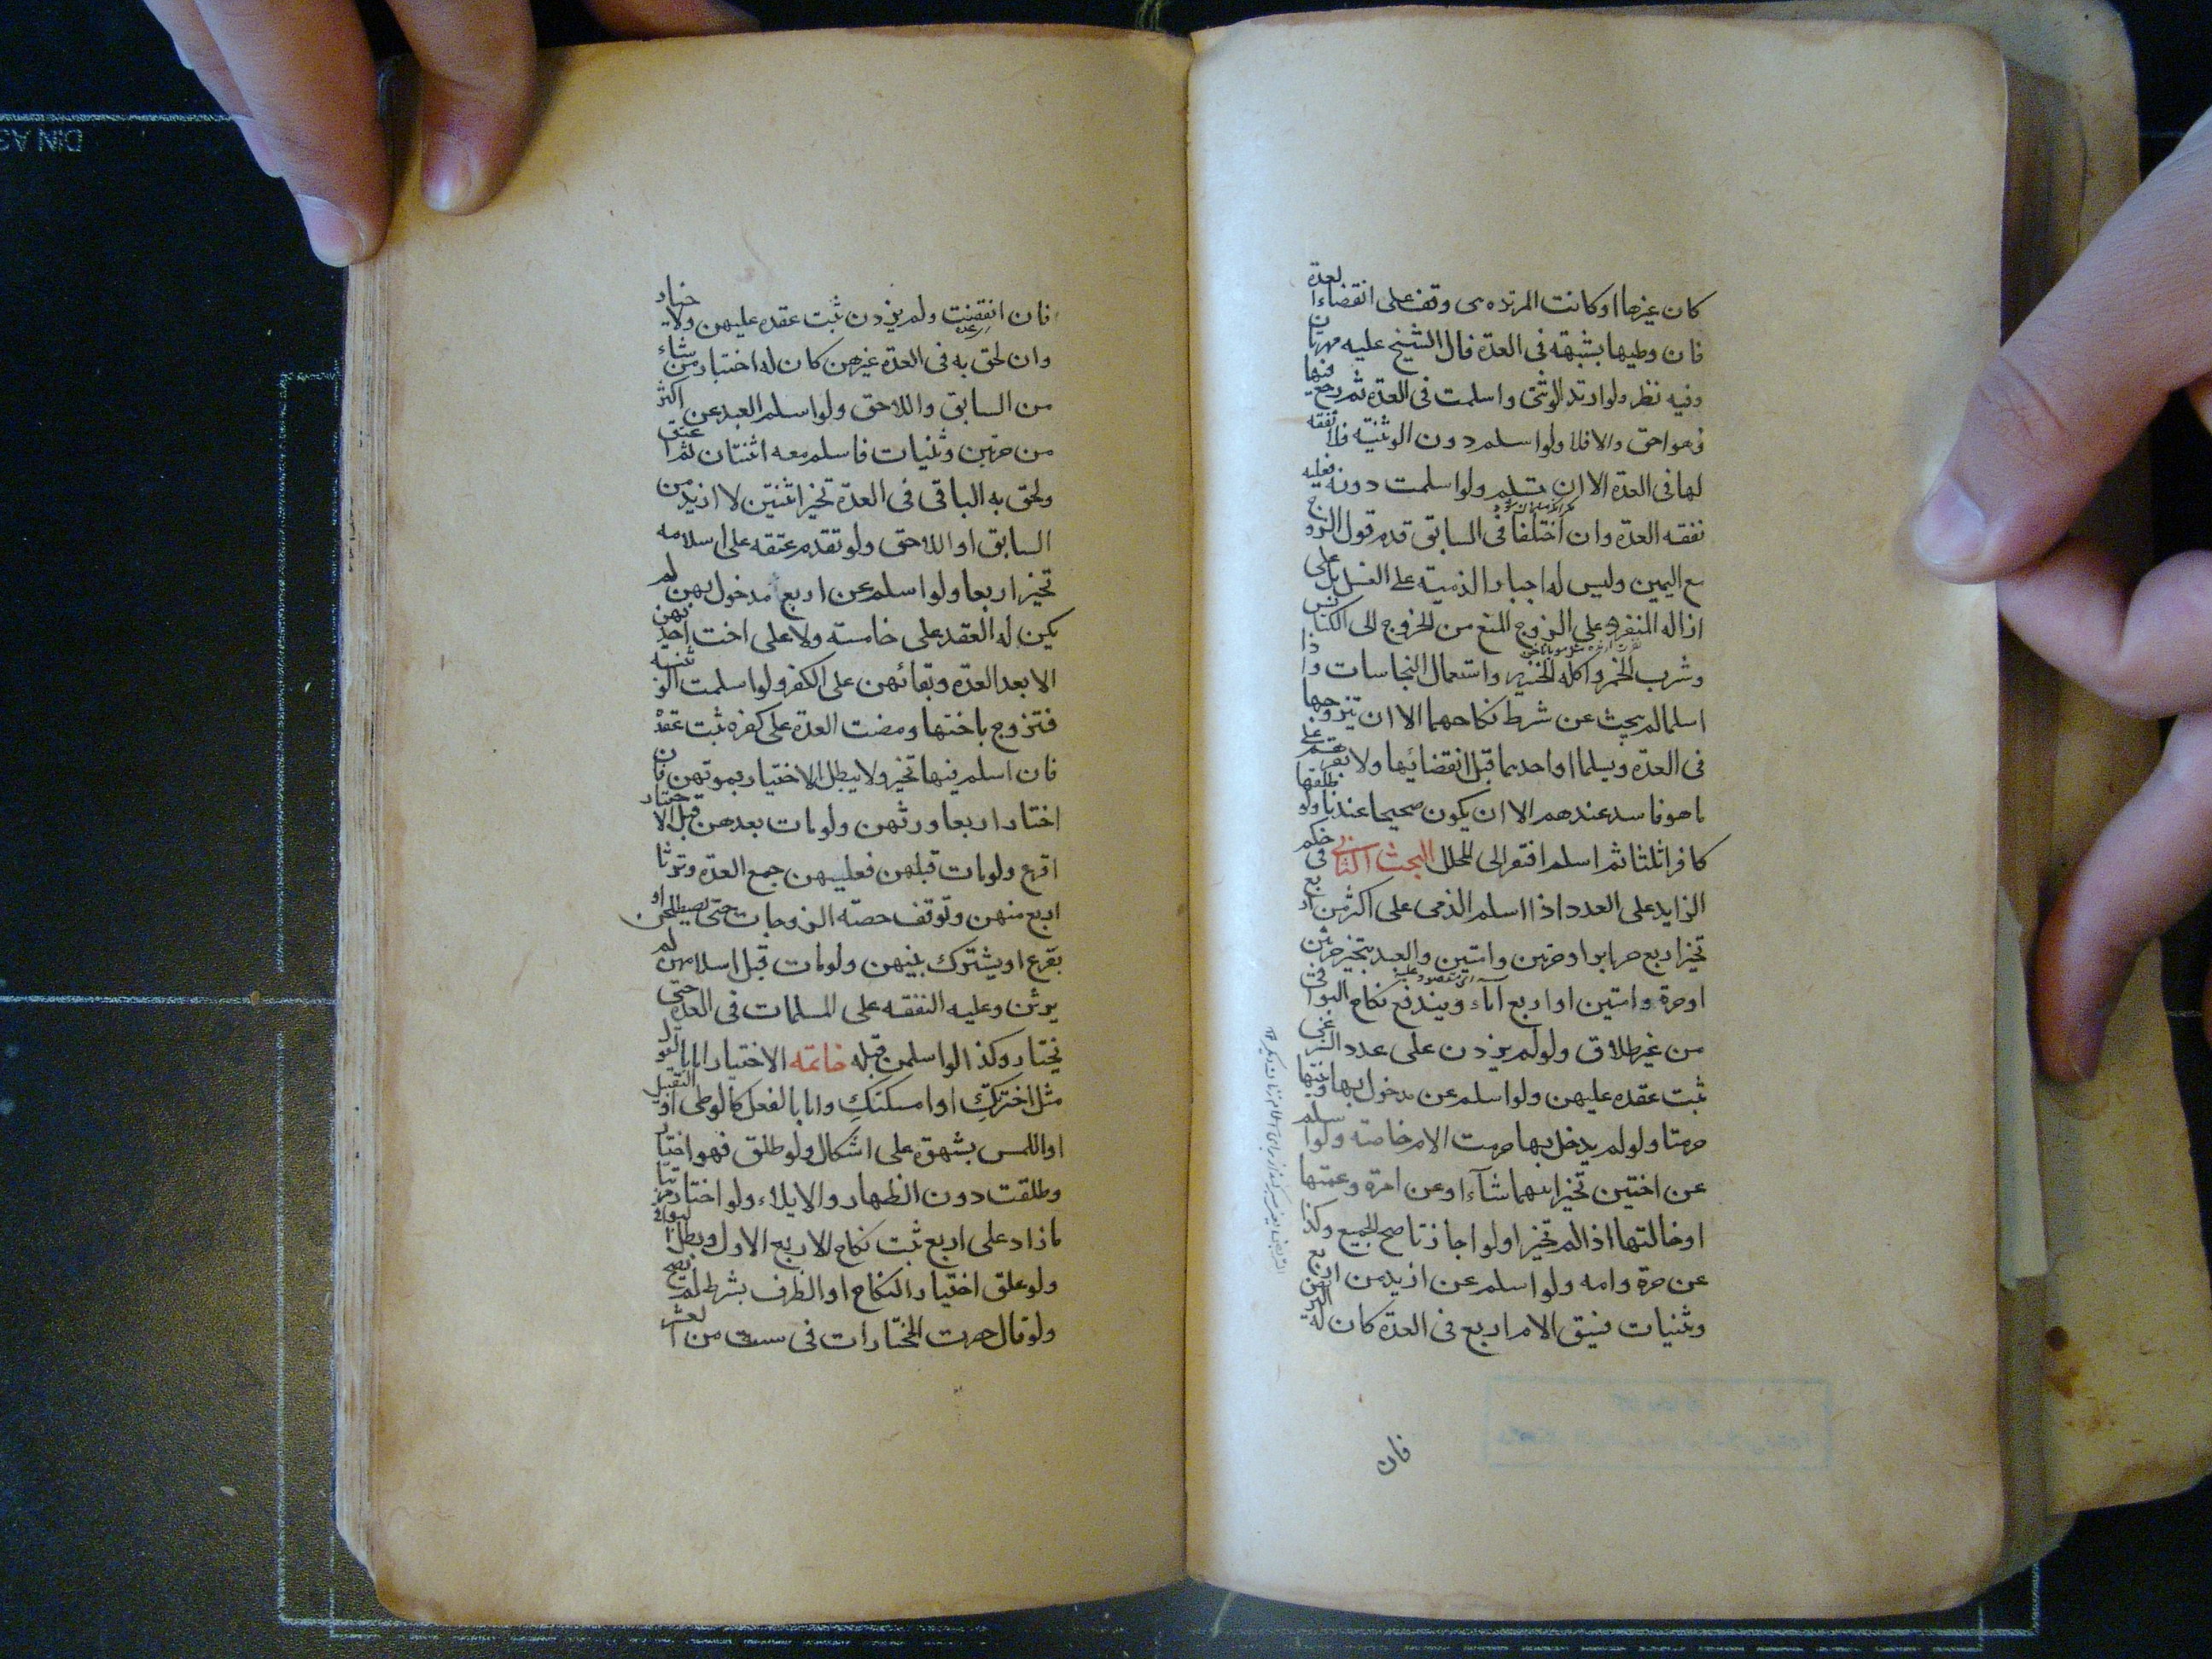 كان غيرها او كانت المرتده هى وقف على انقضاء العدة
فان وطيها بشبهة فى العدة قال الشيخ عليه مهران
وفيه نظر ولو ارتد الوثنى واسلمت فى العدة ثم رجع فيها
فهو احق والا فلا ولو اسلم دون الوثنية فلا نفقه
لها فى العدة الا ان تسلم ولو اسلمت دونه فعليه
نفقه العدة وان اختلفا فى السابق قدم قول الزوج
مع اليمين وليس له اجبار الذمية على الغسل بل على
ازاله المنفر وعلى الزوج المنع من الخروج الى الكنايس
وشرب الخمر واكله الخنزير واستعمال النجاسات واذا
اسلما لم يبحث عن شرط نكاحهما الا ان يتزوجها
فى العدة ويسلما او احدهما قبل انقضائها ولا نقرهم على
ما هو فاسد عندهم الا ان يكون صحيحا عندنا ولو طلقها
كافرا ثلثا ثم اسلم افتقر الى المحلل البحث الثانى فى حكم
الزايد على العدد اذا اسلم الذمى على اكثر من اربع
تخير اربع حرايرا او حرتين وامتين والعبد يتخير حرتين
او حرة وامتين او اربع اماء ويندفع نكاح البواقى
من غير طلاق ولو لم يزدن على عدد الشرعى
ثبت عقده عليهن ولو اسلم عن مدخول بها وبنتها
حرمتا ولو لم يدخل بها حرمت الام خاصة ولو اسلم
عن اختين تخير ايهما شآء او عن امرة وعمتها
او خالتها اذا لم تخيرا ولو اجازتا صح الجميع وكذا
عن حرة وامه ولو اسلم عن ازيد من اربع
وثنيات فسبق الام اربع فى العدة كان له التربص
فان
فان انقضت ولم يزدن ثبت عقده عليهن ولا خيار
عدة
وان لحق به فى العدة غيرهن كان له اختيار من شاء
من السابق واللاحق ولو اسلم العبد عن اكثر
من حرتين وثنيات فاسلم معه اثنتان ثم اعتق
ولحق به الباقى فى العدة تخير اثنتين لا ازيد من
السابق او اللاحق ولو تقدم عتقه على اسلامه
تخير اربعا ولو اسلم عن اربع مدخول بهن لم
يكن له العقد على خامسة ولا على اخت احديهن
الا بعد العدة وبقائهن على الكفر ولو اسلمت الوثنية
فتزوج باختها ومضت العدة على كفره ثبت عقد
فان اسلم فيها تخير ولا يبطل الاختيار بموتهن فان
اختار اربعا ورثهن ولو مات بعدهن قبل الاختيار
اقرع ولو مات قبلهن فعليهن جمع العدة وترثا
اربع منهن وتوقف حصه الزوجات حتى يصطلحن او
يقرع او يشترك بينهن ولو مات قبل اسلامهن لم
يرثن وعليه النفقه على المسلمات فى العدة حتى
يختار وكذا لو اسلمن قبله خاتمه الاختيار اما بالقول
مثل اخترتكِ او امسكتكِ واما بالفعل كالوطى او التقبيل
او اللمس بشهوة على اشكال ولو طلق فهو اختيار
وطلقت دون الظهار والايلاء ولو اختار مرتبا
ما زاد على اربع ثبت نكاح الاربع الاول وبطل البواقى
ولو علق اختيار النكاح او الظرف بشرط لم يصح
ولو قال حصرت المختارات فى ست من العشر